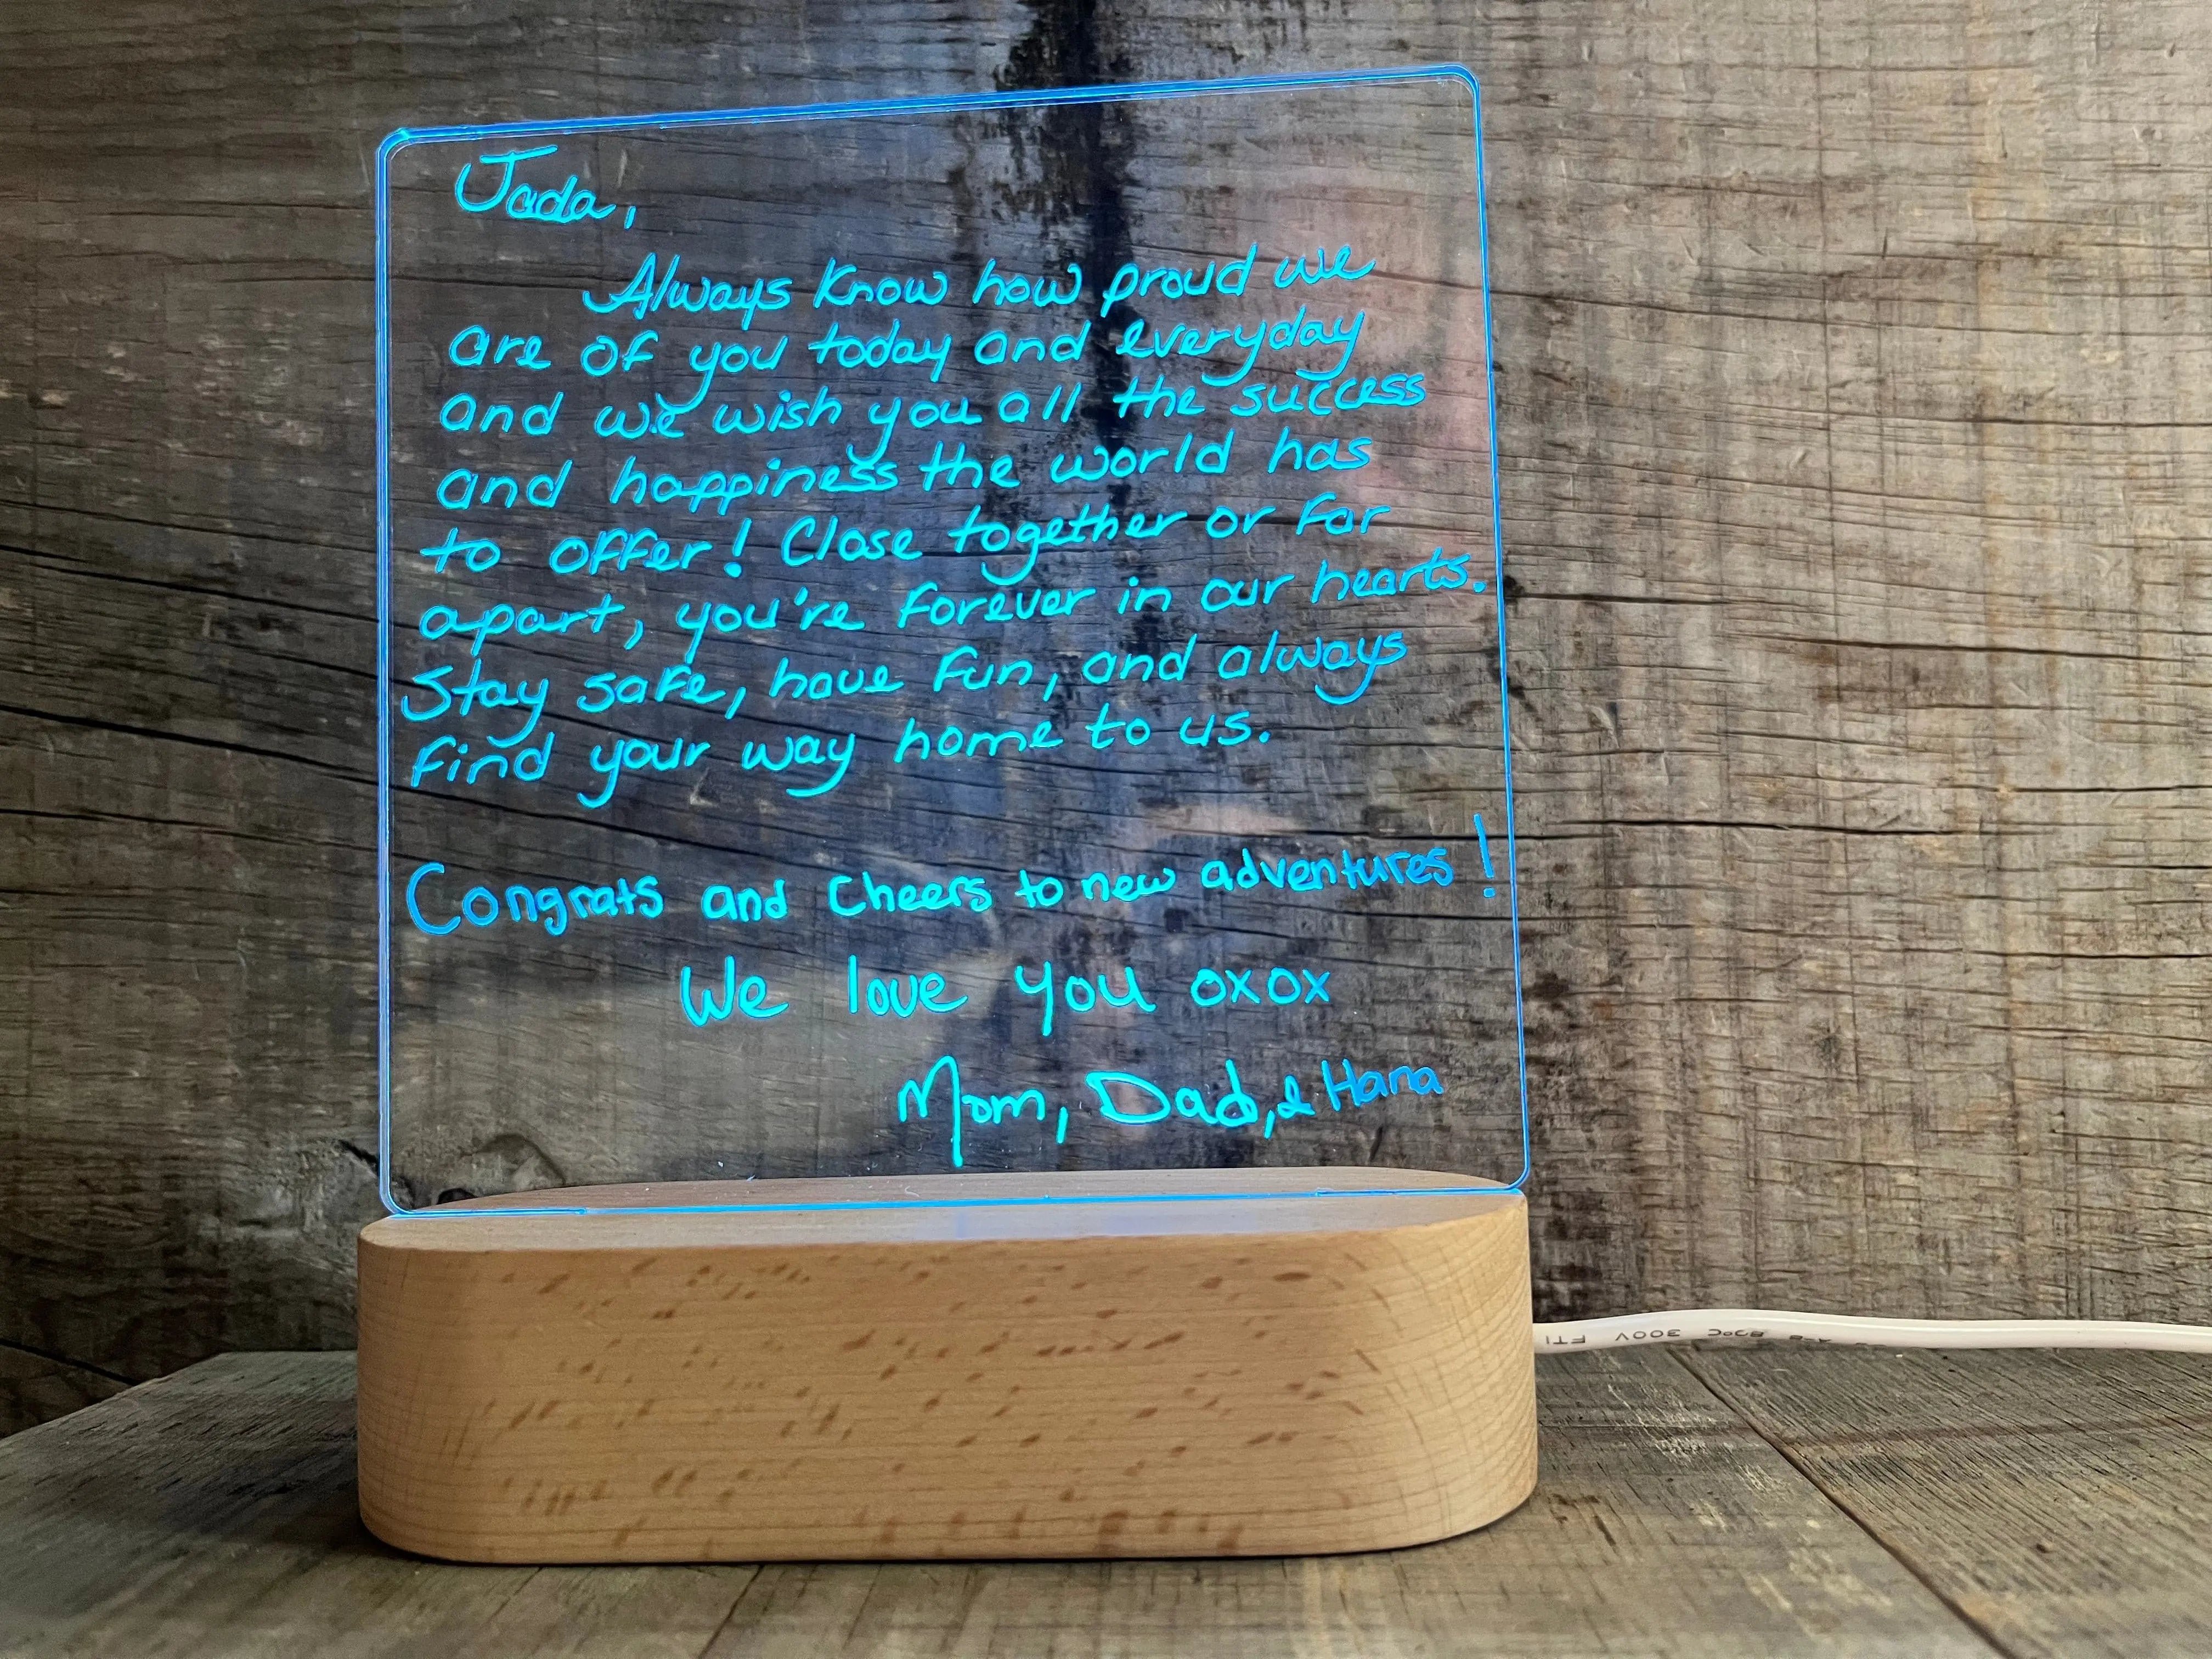 Jada,
Always know how proud we
are of you today and everyday
and we wish you all the success
and happiness the world has
to offer! Close together or far
apart, you're forever in our hearts.
Stay safe, have fun, and always
find your way home to us.
Congrats and cheers to new adventures!
We love you oxox
Mom, Dad, & Hana
80°C 300V FTI